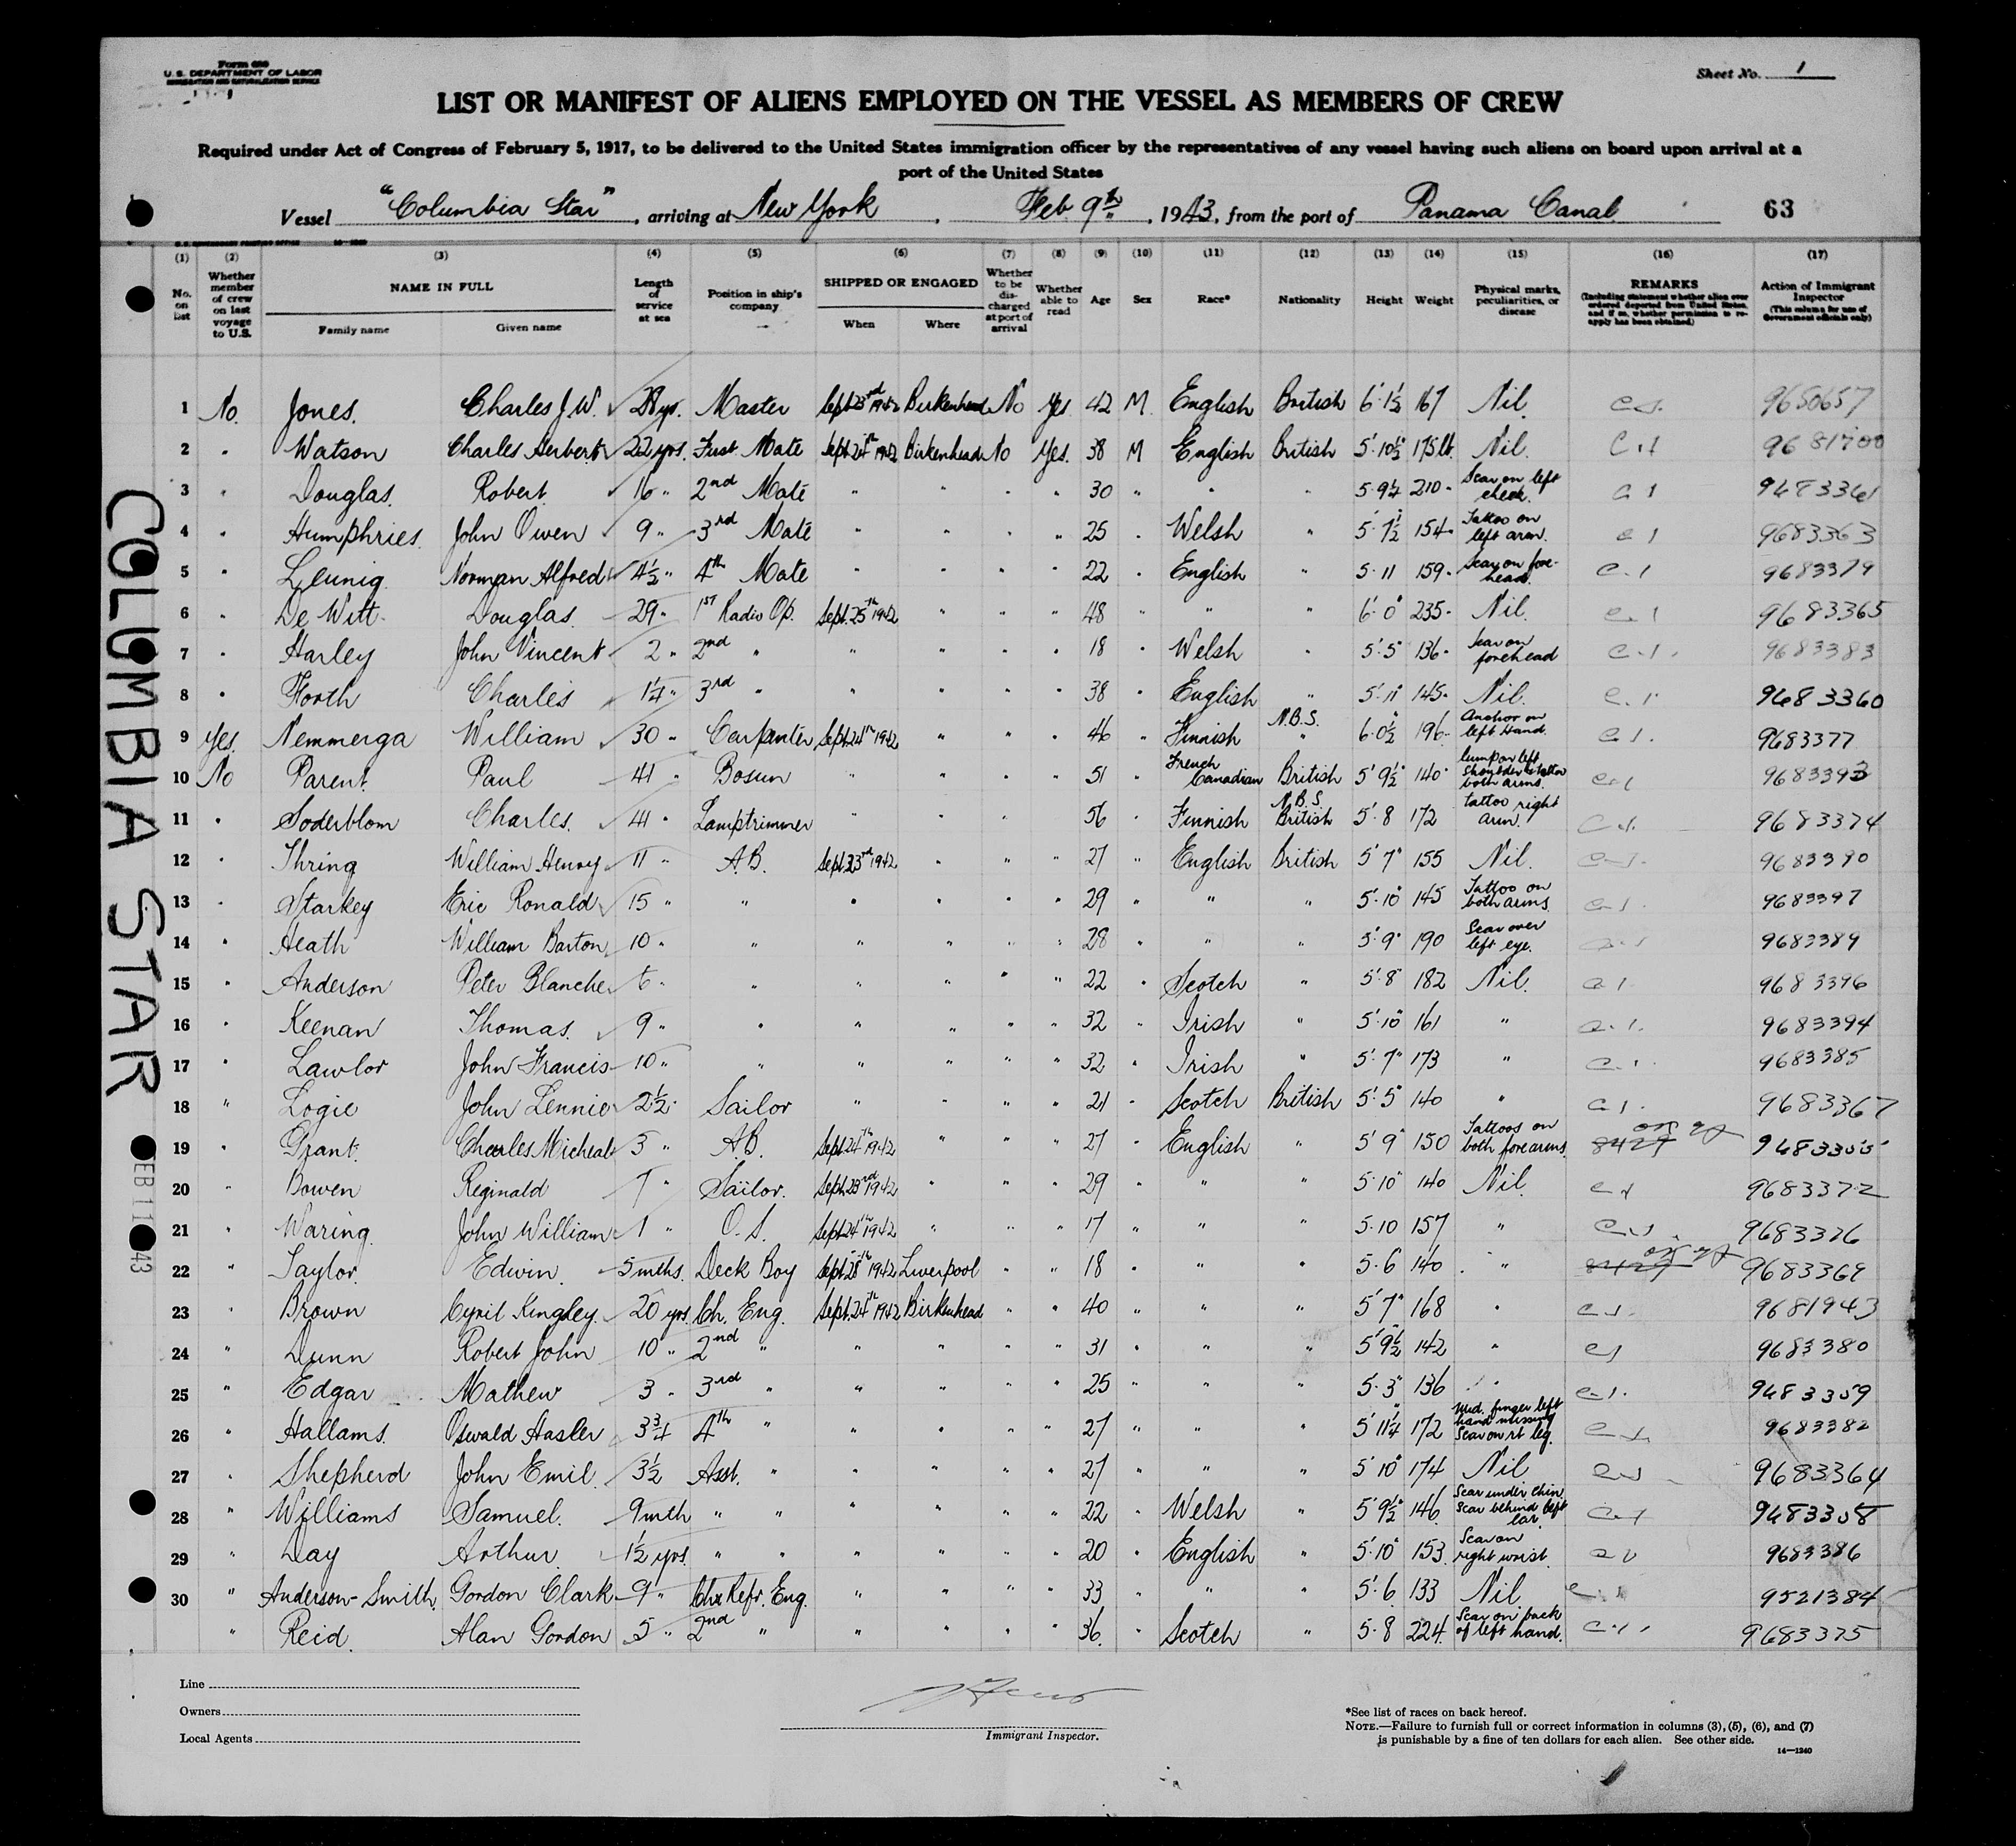 Form 689
U.S. DEPARTMENT OF LABOR
IMMIGRATION AND NATURALIZATION SERVICE
Sheet No. 1
LIST OR MANIFEST OF ALIENS EMPLOYED ON THE VESSEL AS MEMBERS OF CREW
Required under Act of Congress of February 5, 1917, to be delivered to the United States immigration officer by the representatives of any vessel having such aliens on board upon arrival at a
port of the United States
Vessel "Columbia Star", arriving at New York, Feb 9th, 1943, from the port of Panama Canal 63
(1) (2) (3) (4) (5) (6) (7) (8) (9) (10) (11) (12) (13) (14) (15) (16) (17)
No. on list
Whether member of crew on last voyage to U.S.
NAME IN FULL
Family name Given name
Length of service at sea
Position in ship's company
SHIPPED OR ENGAGED
When Where
Whether to be discharged at port of arrival
Whether able to read
Age
Sex
Race*
Nationality
Height
Weight
Physical marks, peculiarities, or disease
REMARKS
(Including statement whether alien ever ordered deported from United States, and if so, whether permission to re-apply has been obtained)
Action of Immigrant Inspector
(This column for use of Government officials only)
1 No. Jones. Charles J.W. 28 yrs. Master Sept 23rd 1942 Birkenhead No Yes 42 M. English British 6'1½ 167 Nil. 9650657
2 " Watson Charles Herbert 22 yrs. First Mate Sept 24th 1942 Birkenhead No Yes. 38 M English British 5'10½ 175 lb. Nil. 9681700
3 " Douglas. Robert 16 " 2nd Mate " " " " 30 " " " 5·9½ 210 Scar on left cheek.
4 " Humphries. John Owen 9 " 3rd Mate " " " " 25 " Welsh " 5·7½ 154 Tattoo on left arm. 9683363
5 " Leunig. Norman Alfred 4½ " 4th Mate " " " " 22 " English " 5·11 159 Scar on forehead. 9683379
6 " De Witt. Douglas. 29 " 1st Radio Op. Sept. 25th 1942 " " " 48 " " " 6·0" 235 Nil. 9683365
7 " Harley John Vincent 2 " 2nd " " " " " 18 " Welsh " 5'5" 136 Scar on forehead 9683383
8 " Forth Charles 1¼ " 3rd " " " " " 38 " English " 5'11" 145 Nil. 9683360
9 Yes. Nemmerga William 30 " Carpenter Sept 24th 1942 " " " 46 " Finnish N.B.S. " 6·0½ 196 Anchor on left Hand. 9683377
10 No Parent. Paul 41 " Bosun " " " " 51 " French Canadian British 5'9½ 140 lump on left shoulder tattoo both arms. 9683393
11 " Soderblom Charles. 41 " Lamptrimmer " " " 56 " Finnish N.B.S. British 5'8 172 tattoo right arm. 9683374
12 " Thring William Henry 11 " A.B. Sept. 23rd 1942 " " " 27 " English British 5'7" 155 Nil. 9683390
13 " Starkey Eric Ronald 15 " " " " " " 29 " " " 5·10" 145 Tattoo on both arms. 9683397
14 " Heath William Barton 10 " " " " " " 28 " " " 5'9" 190 Scar over left eye. 9683389
15 " Anderson Peter Blanche 6 " " " " " " 22 " Scotch " 5'8" 182 Nil. 9683396
16 " Keenan Thomas. 9 " " " " " " 32 " Irish " 5'10" 161 " 9683394
17 " Lawlor John Francis 10 " " " " " " 32 " Irish " 5'7" 173 " 9683385
18 " Logie John Lennie 2½ " Sailor " " " " 21 " Scotch British 5'5" 140 " 9683367
19 " Grant. Charles Micheal 3 " A.B. Sept 24th 1942 " " " 27 " English " 5'9" 150 Tattoos on both forearms. 8429 9683355
20 " Bowen Reginald 7 " Sailor. Sept 23rd 1942 " " " 29 " " " 5·10" 140 Nil. 9683372
21 " Waring. John William 1 " O.S. Sept 24th 1942 " " " 17 " " " 5·10 157 " 9683376
22 " Taylor. Edwin. 5 mths. Deck Boy Sept 28th 1942 Liverpool " " 18 " " " 5·6 140 " 8429 9683369
23 " Brown Cyril Kingley. 20 yrs. Ch. Eng. Sept. 24th 1942 Birkenhead " " 40 " " " 5'7" 168 " 9681943
24 " Dunn Robert John 10 " 2nd " " " " " 31 " " " 5'9½ 142 " 9683380
25 " Edgar Mathew 3 " 3rd " " " " " 25 " " " 5·3" 136 " 9683359
26 " Hallams. Oswald Hasler 3¾ 4th " " " " " 27 " " " 5'11¼ 172 Mid. finger left hand missing Scar on rt leg. 9683382
27 " Shepherd John Emil. 3½ Asst. " " " " " 27 " " " 5'10" 174 Nil 9683364
28 " Williams Samuel. 9 mth " " " " " " 22 " Welsh " 5'9½ 146 Scar under chin. Scar behind left ear. 9683358
29 " Day Arthur. 1½ yrs. " " " " " " 20 " English " 5'10" 153 Scar on right wrist. 9683386
30 " Anderson-Smith. Gordon Clark 9 " Chx Refr. Eng. " " " " 33 " " " 5'·6 133 Nil 9521384
" Reid. Alan Gordon 5 " 2nd " " " " " 36. " Scotch " 5·8 224. Scar on back of left hand. 9683375
COLUMBIA STAR
Line
Owners
Local Agents
Immigrant Inspector.
*See list of races on back hereof.
NOTE.—Failure to furnish full or correct information in columns (3), (5), (6), and (7)
is punishable by a fine of ten dollars for each alien. See other side.
14—1240